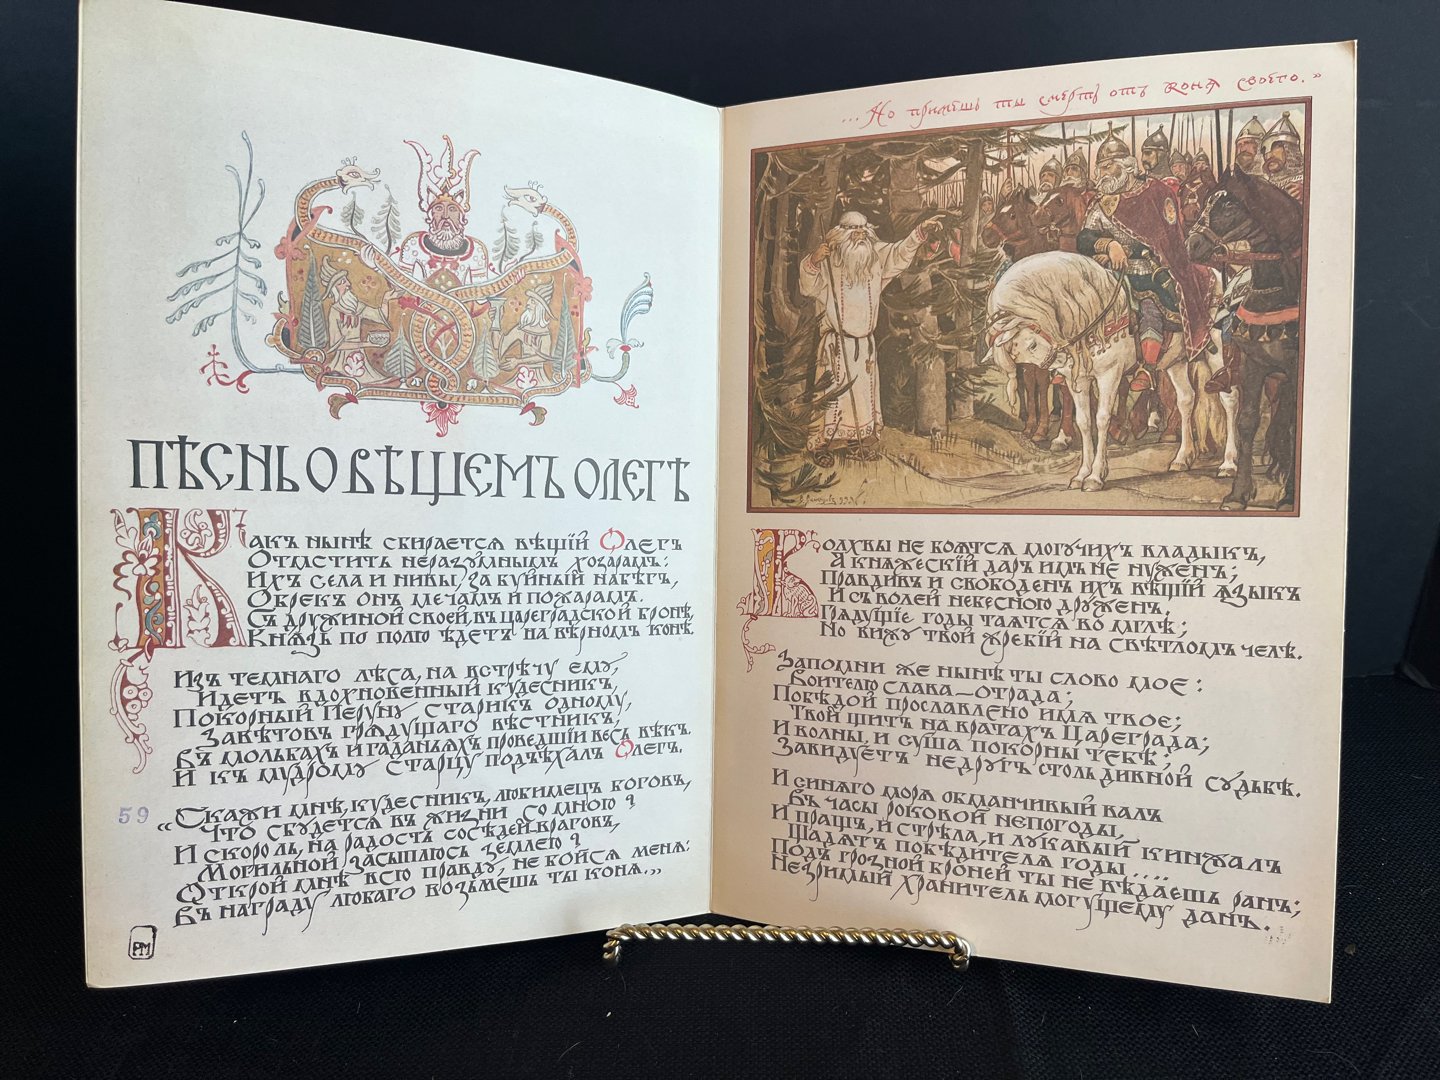 ПѢСНЬ О ВѢЩЕМЪ ОЛЕГѢ
Какъ нынѣ сбирается вѣщій Олегъ
Отмстить неразумнымъ хозарамъ:
Ихъ села и нивы, за буйный набѣгъ,
Обрекъ онъ мечамъ и пожарамъ.
Съ дружиной своей, въ цареградской бронѣ,
Князь по полю ѣдетъ на вѣрномъ конѣ.
Изъ темнаго лѣса, на встрѣчу ему,
Идетъ вдохновенный кудесникъ,
Покорный Перуну старикъ одному,
Завѣтовъ грядущаго вѣстникъ,
Въ мольбахъ и гаданьяхъ проведшій весь вѣкъ.
И къ мудрому старцу подъѣхалъ Олегъ.
„Скажи мнѣ, кудесникъ, любимецъ боговъ,
Что сбудется въ жизни со мною?
И скоро ль, на радость сосѣдей-враговъ,
Могильной засыплюсь землею?
Открой мнѣ всю правду, не бойся меня:
Въ награду любаго возьмешь ты коня.„
59
РМ
...Но примешь ты смерть отъ коня своего.”
В. Васнецовъ 99
Волхвы не боятся могучихъ владыкъ,
А княжескій даръ имъ не нуженъ;
Правдивъ и свободенъ ихъ вѣщій языкъ
И съ волей небесною друженъ.
Грядущіе годы таятся во мглѣ;
Но вижу твой жребій на свѣтломъ челѣ.
Запомни же нынѣ ты слово мое:
Воителю слава — отрада;
Побѣдой прославлено имя твое;
Твой щитъ на вратахъ Цареграда;
И волны, и суша покорны тебѣ;
Завидуетъ недругъ столь дивной судьбѣ.
И синяго моря обманчивый валъ
Въ часы роковой непогоды,
И пращъ, и стрѣла, и лукавый кинжалъ
Щадятъ побѣдителя годы....
Подъ грозной броней ты не вѣдаешь ранъ;
Незримый хранитель могущему данъ.